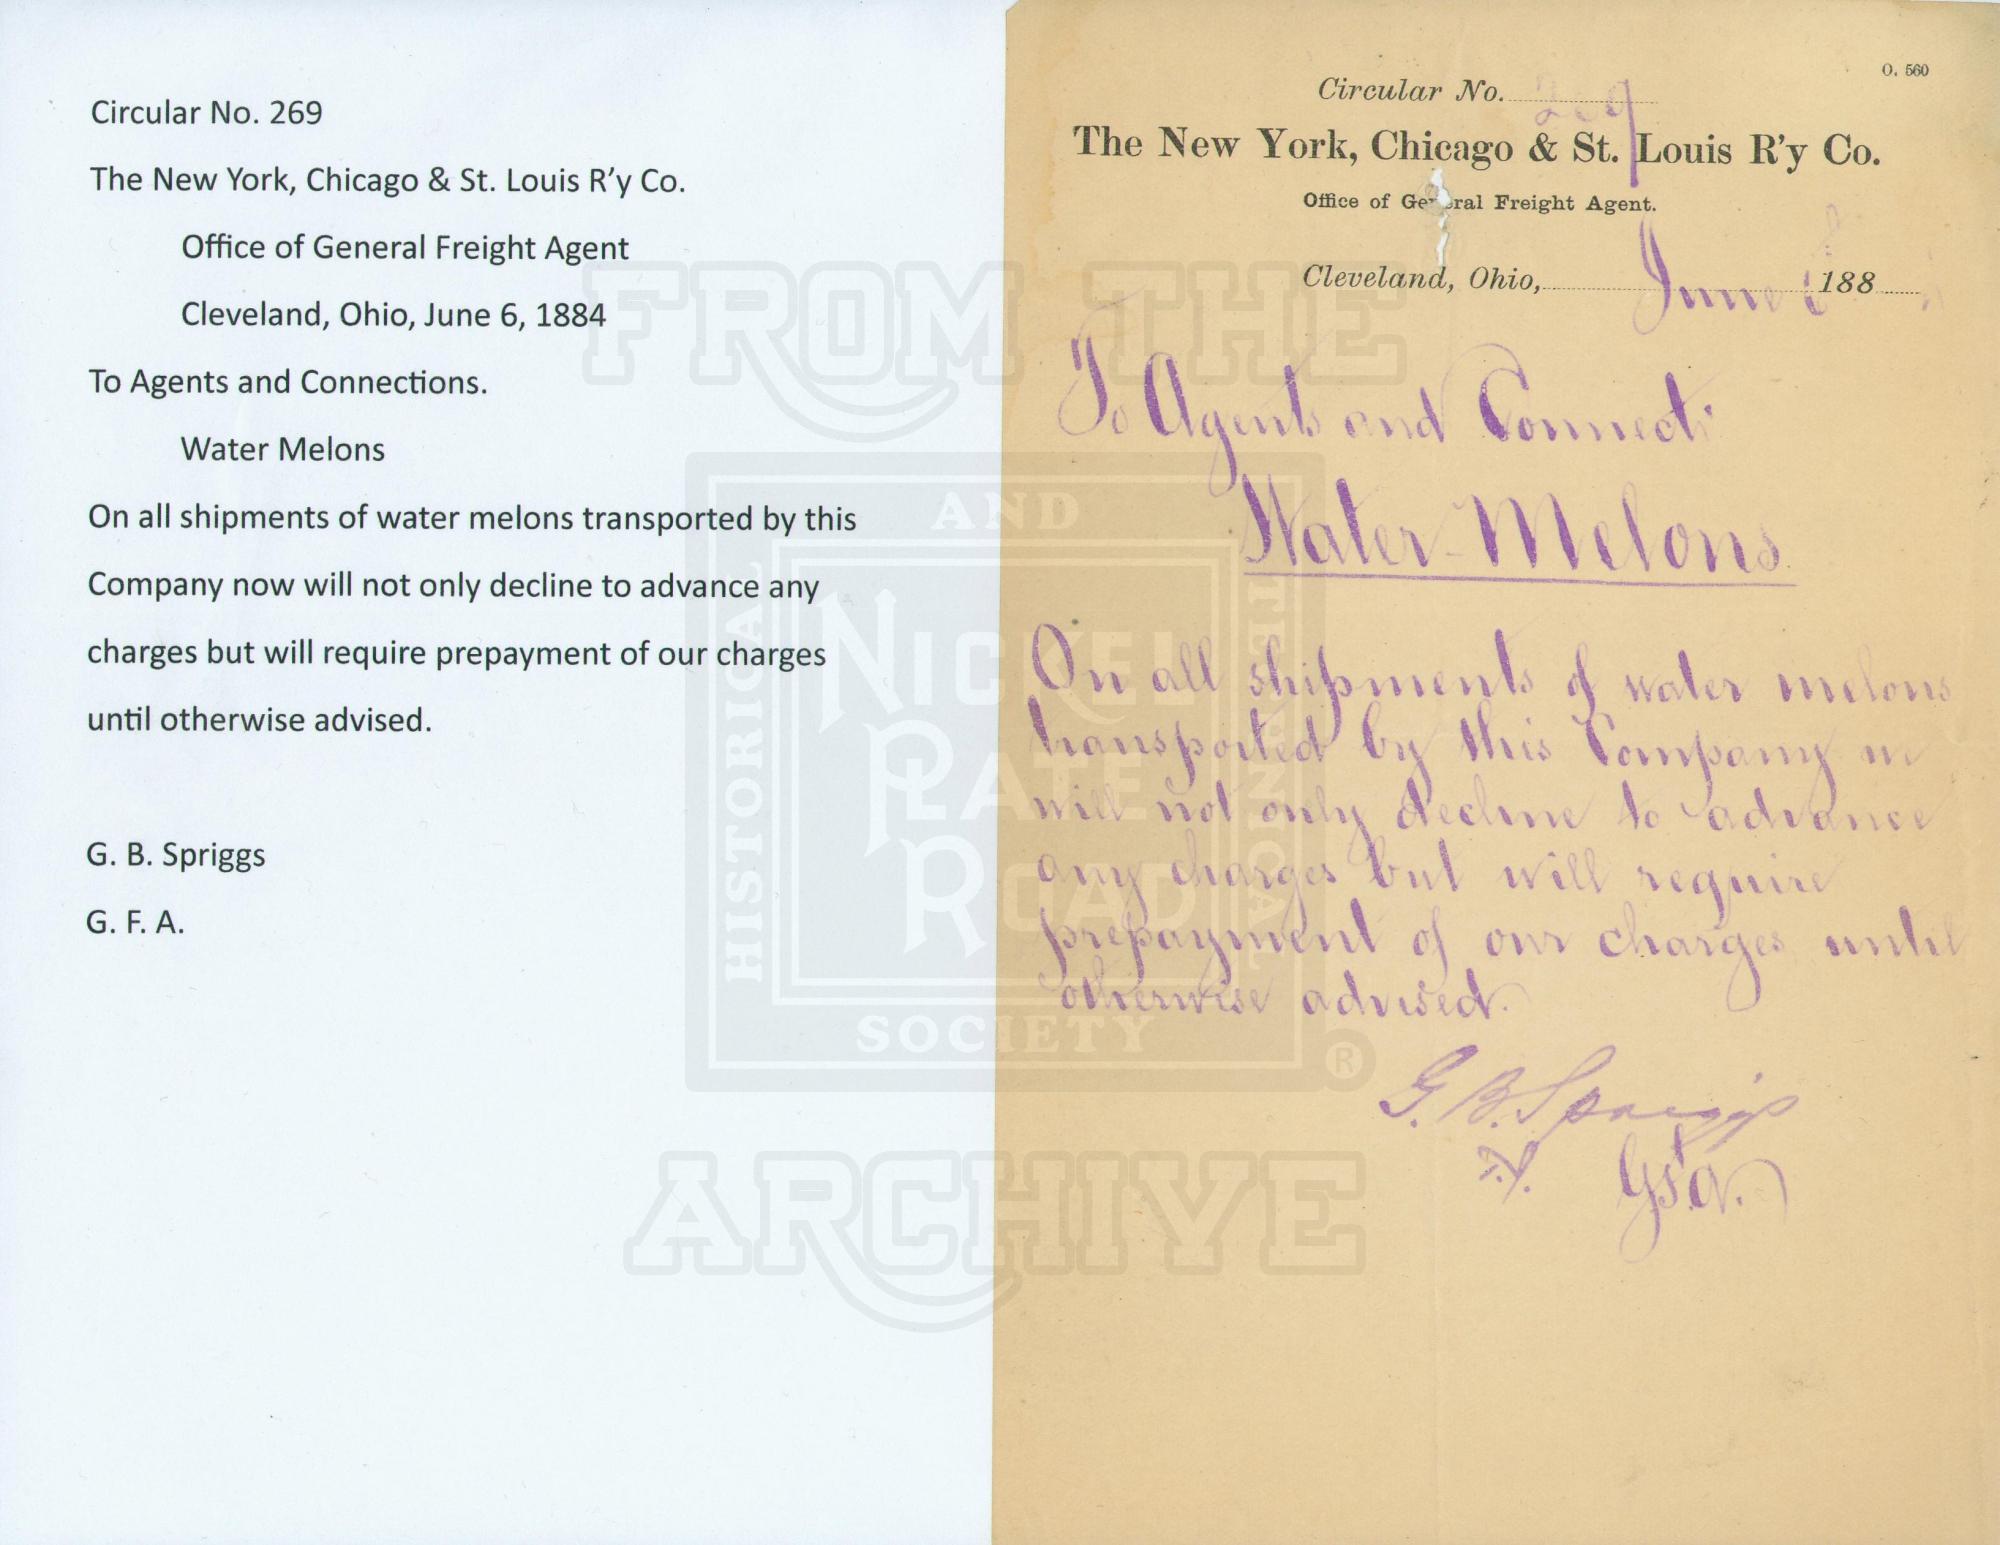 Circular No. 269
The New York, Chicago & St. Louis R’y Co.
Office of General Freight Agent
Cleveland, Ohio, June 6, 1884
To Agents and Connections.
Water Melons
On all shipments of water melons transported by this
Company now will not only decline to advance any
charges but will require prepayment of our charges
until otherwise advised.
G. B. Spriggs
G. F. A.
O. 560
Circular No. 269
The New York, Chicago & St. Louis R'y Co.
Office of General Freight Agent.
Cleveland, Ohio, June 188
To Agents and Connecti
Water-Melons
On all shipments of water melons
transported by this Company
will not only decline to advance
any charges but will require
prepayment of our charges until
otherwise advised.
G. B. Spriggs
G.F.A.
FROM THE
HISTORICAL AND TECHNICAL SOCIETY
NICKEL
PLATE
ROAD
®
ARCHIVE